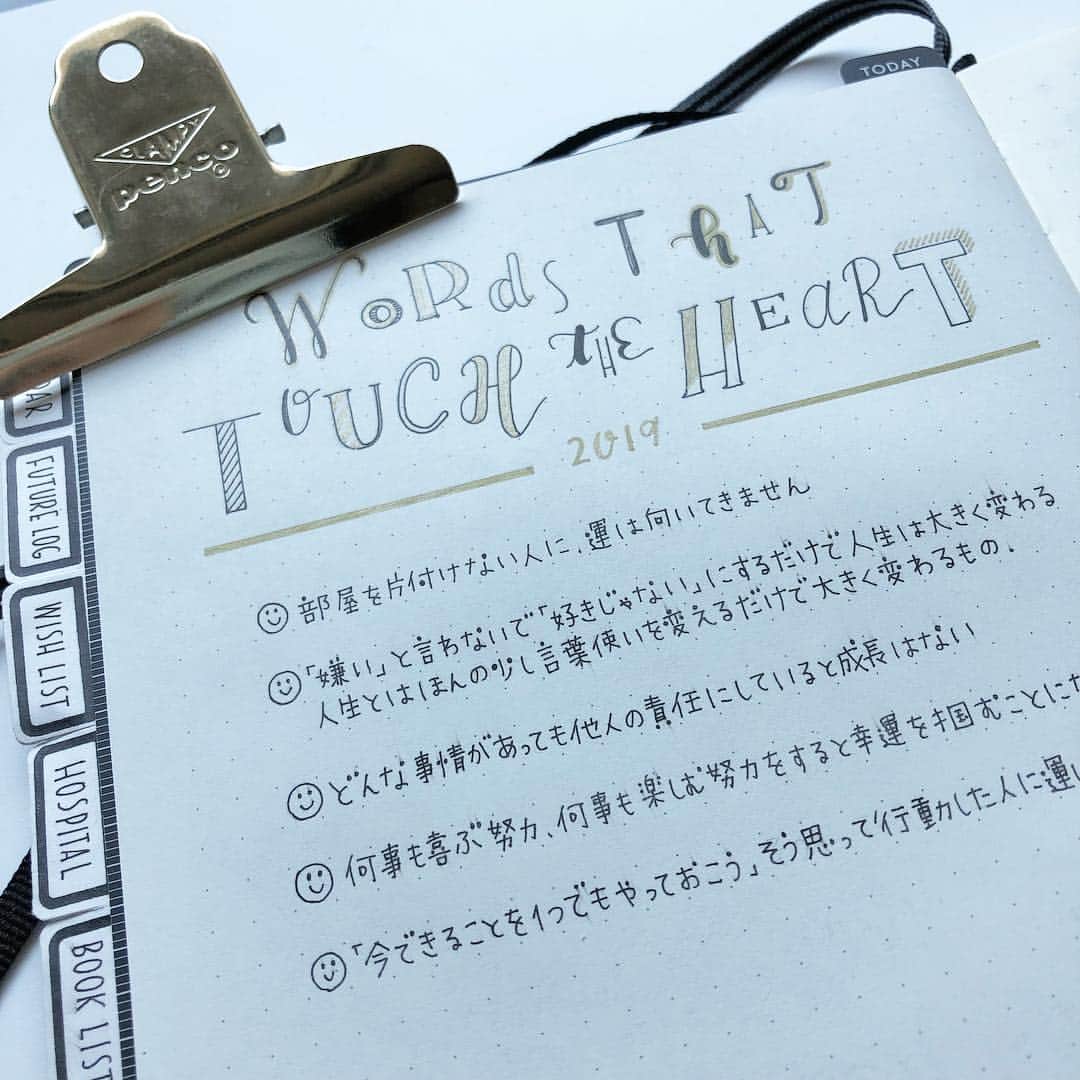 CLAMPY
penco
TODAY
WORDS THAT
TOUCH THE HEART
2019
部屋を片付けない人に、運は向いてきません
「嫌い」と言わないで「好きじゃない」にするだけで人生は大きく変わる
人生とはほんの少し言葉使いを変えるだけで大きく変わるもの.
どんな事情があっても他人の責任にしていると成長はない
何事も喜ぶ努力、何事も楽しむ努力をすると幸運をつかむことに
「今できることを1つでもやっておこう」そう思って行動した人に運
FUTURE LOG
WISH LIST
HOSPITAL
BOOK LIST